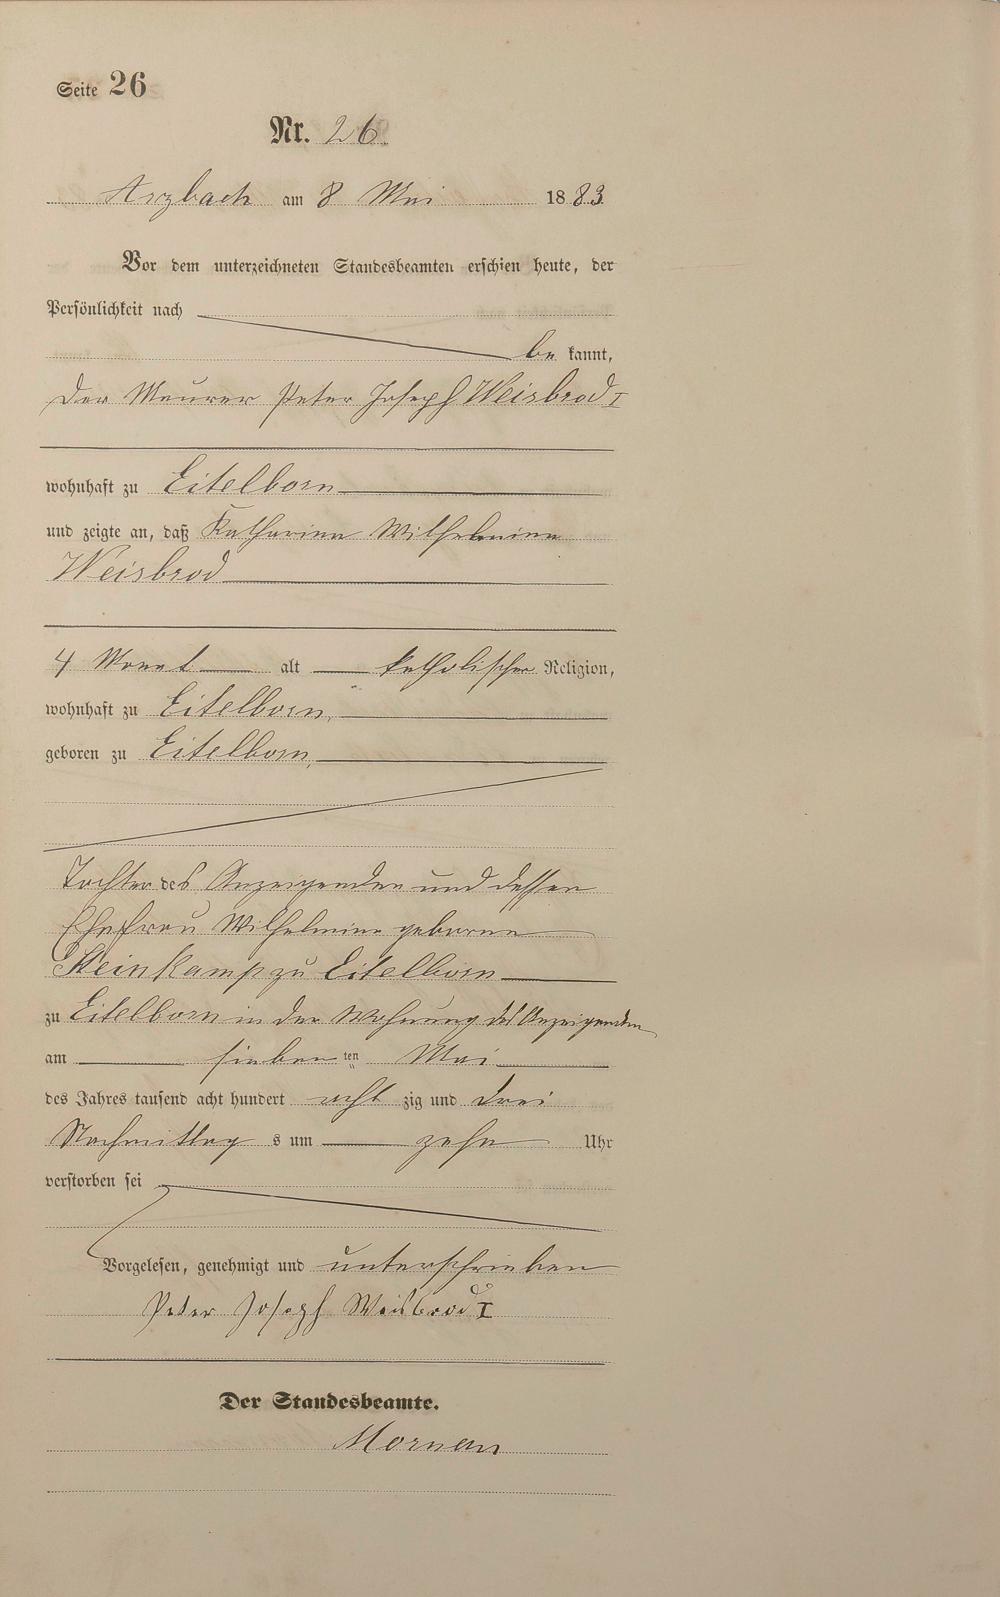 Seite 26
Nr. 26.
Arzbach am 8 Mai 1883
Vor dem unterzeichneten Standesbeamten erschien heute, der
Persönlichkeit nach
be kannt,
der Maurer Peter Joseph Weisbrod I
wohnhaft zu Eitelborn
und zeigte an, daß Katharina Wilhelmina
Weisbrod
4 Monat alt katholischer Religion,
wohnhaft zu Eitelborn,
geboren zu Eitelborn,
Tochter des Anzeigenden und dessen
Ehefrau Wilhelmine geborne
Steinkamp zu Eitelborn
zu Eitelborn in der Wohnung des Anzeigenden
am sieben ten Mai
des Jahres tausend acht hundert acht zig und drei
Nachmittag s um zehn Uhr
verstorben sei
Vorgelesen, genehmigt und unterschrieben
Peter Joseph Weisbrod I
Der Standesbeamte.